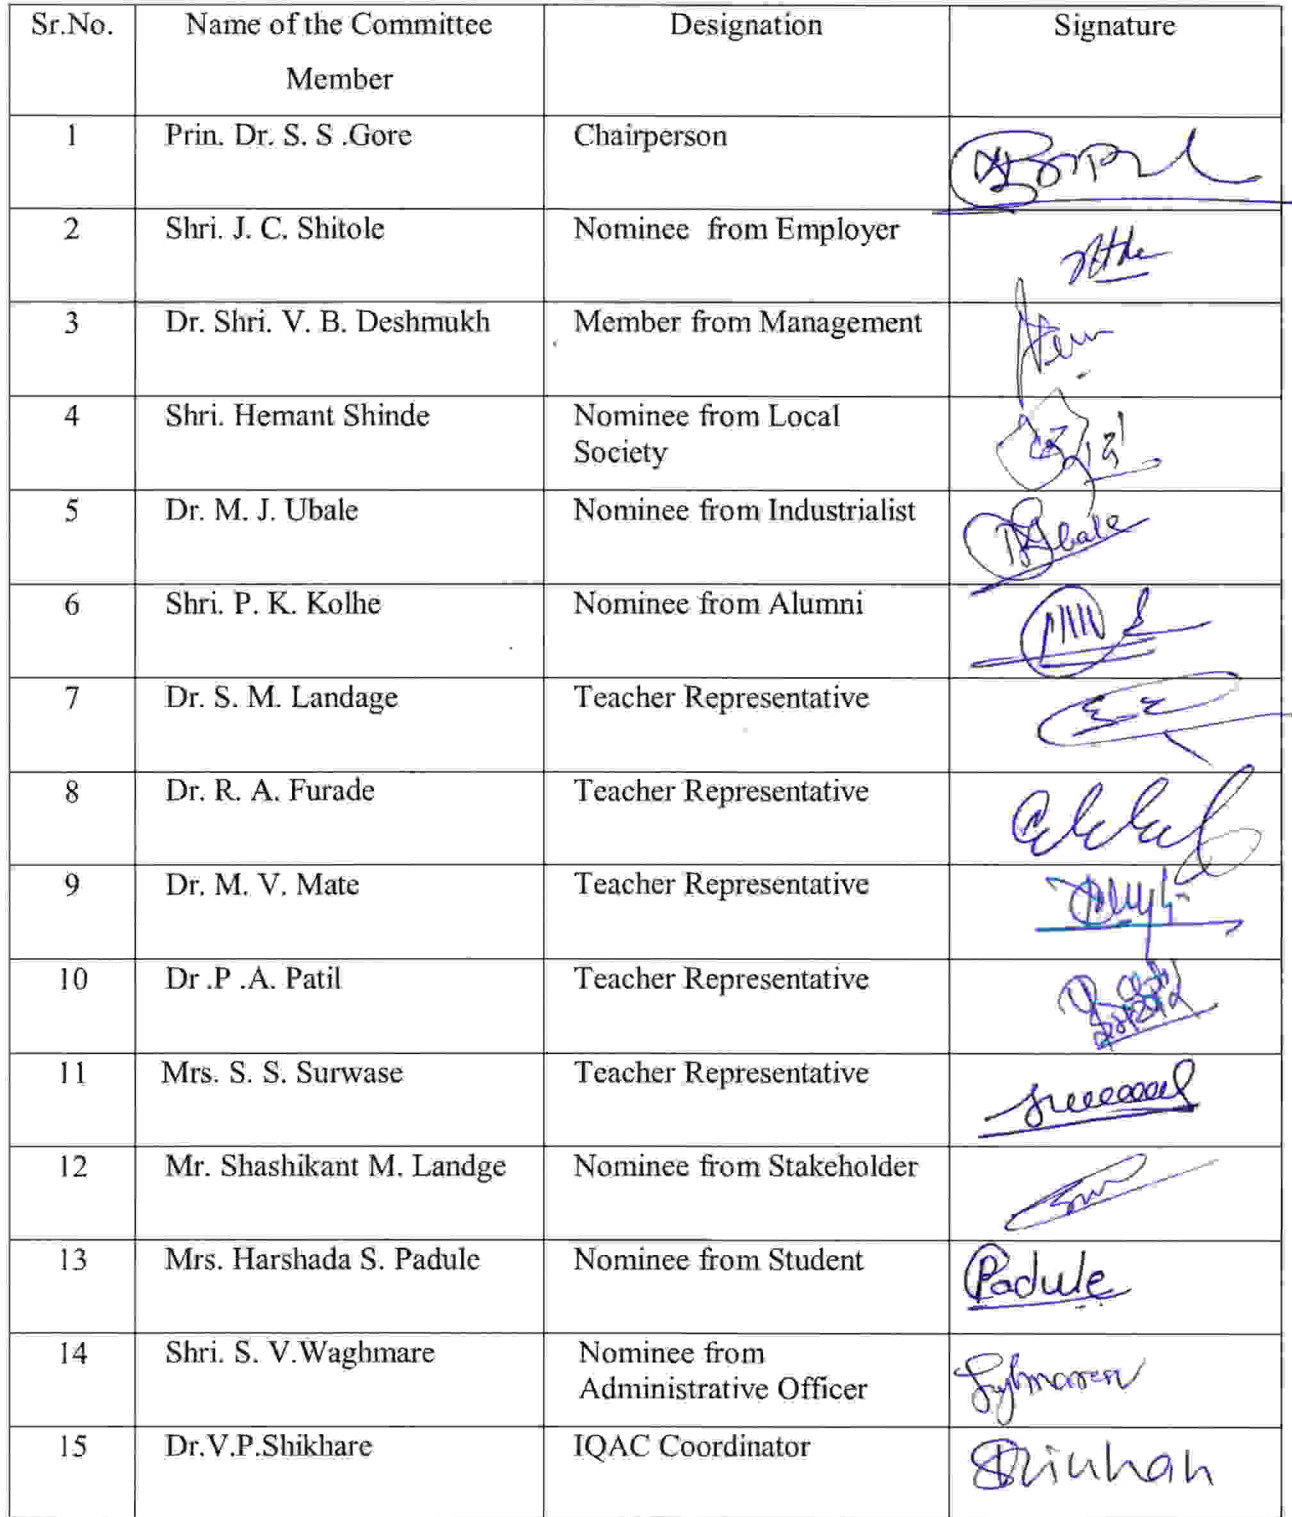 Sr.No. Name of the Committee Member Designation Signature
1 Prin. Dr. S. S .Gore Chairperson
2 Shri. J. C. Shitole Nominee from Employer
3 Dr. Shri. V. B. Deshmukh Member from Management
4 Shri. Hemant Shinde Nominee from Local
Society
5 Dr. M. J. Ubale Nominee from Industrialist
6 Shri. P. K. Kolhe Nominee from Alumni
7 Dr. S. M. Landage Teacher Representative
8 Dr. R. A. Furade Teacher Representative
9 Dr. M. V. Mate Teacher Representative
10 Dr .P .A. Patil Teacher Representative
11 Mrs. S. S. Surwase Teacher Representative
12 Mr. Shashikant M. Landge Nominee from Stakeholder
13 Mrs. Harshada S. Padule Nominee from Student Padule
14 Shri. S. V.Waghmare Nominee from
Administrative Officer
15 Dr.V.P.Shikhare IQAC Coordinator